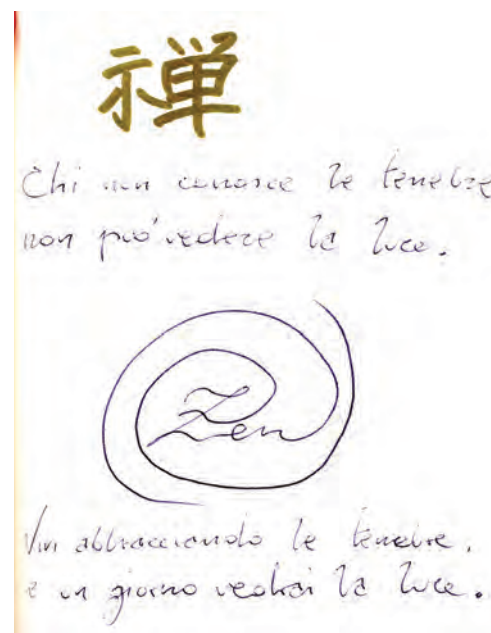 禅
Chi non conosce le tenebre
non può vedere la luce.
Zen
Vivi abbracciando le tenebre,
e un giorno vedrai la luce.